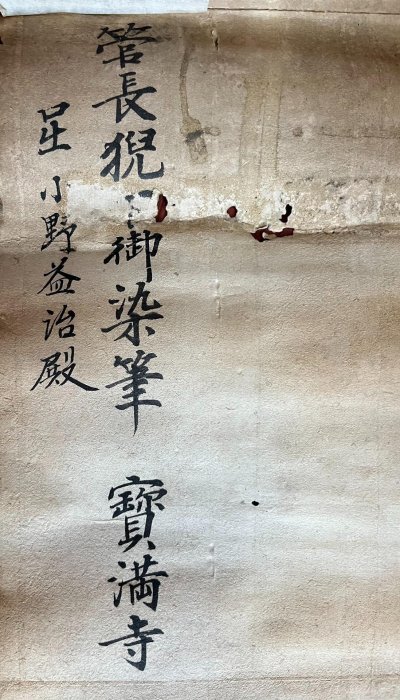 管長猊下御染筆 寶満寺
呈 小野益治殿